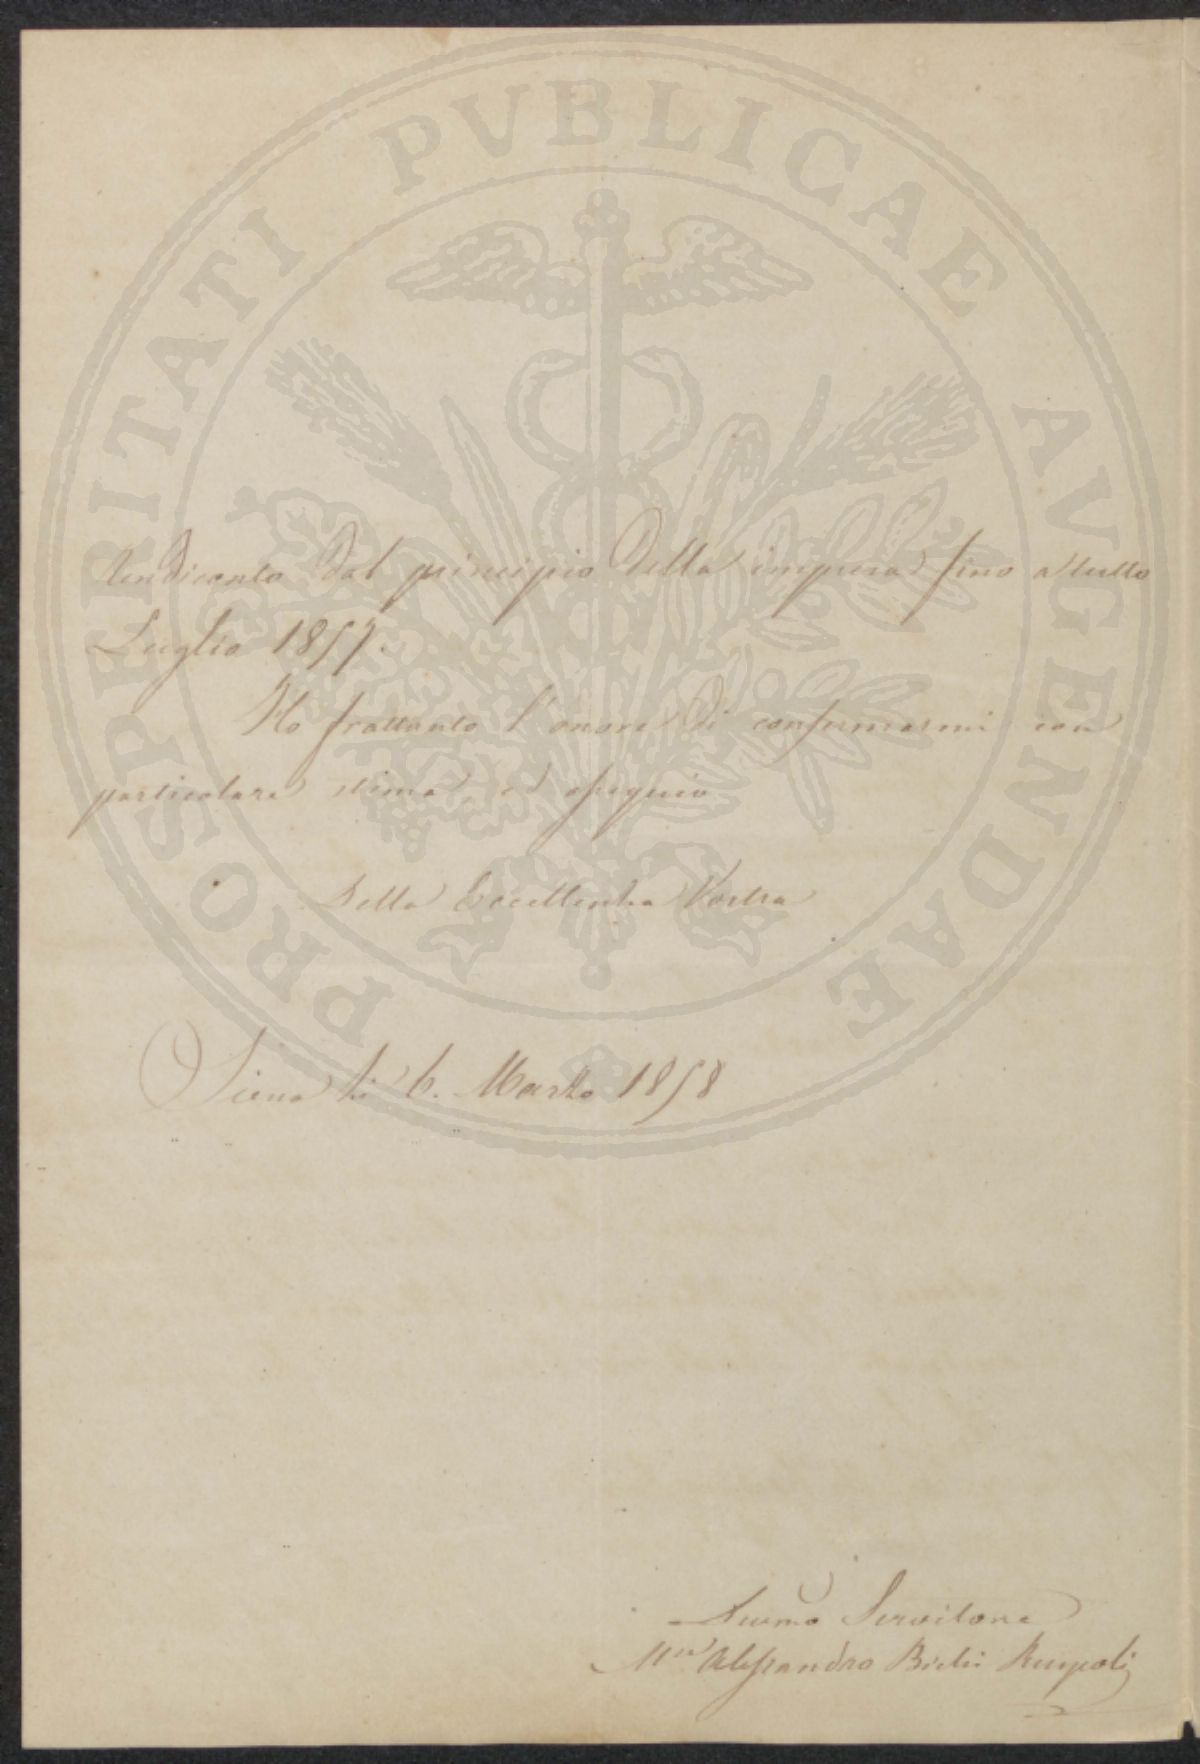 PROSPERITATI PVBLICAE AVGENDAE
Rendiconto dal principio della impresa fino a tutto
Luglio 1857.
Ho frattanto l'onore di confermarmi con
particolare stima, ed ossequio
Della Eccellenza Vostra
Siena li 6. Marzo 1858
Servitore
Alessandro Bichi Ruspoli